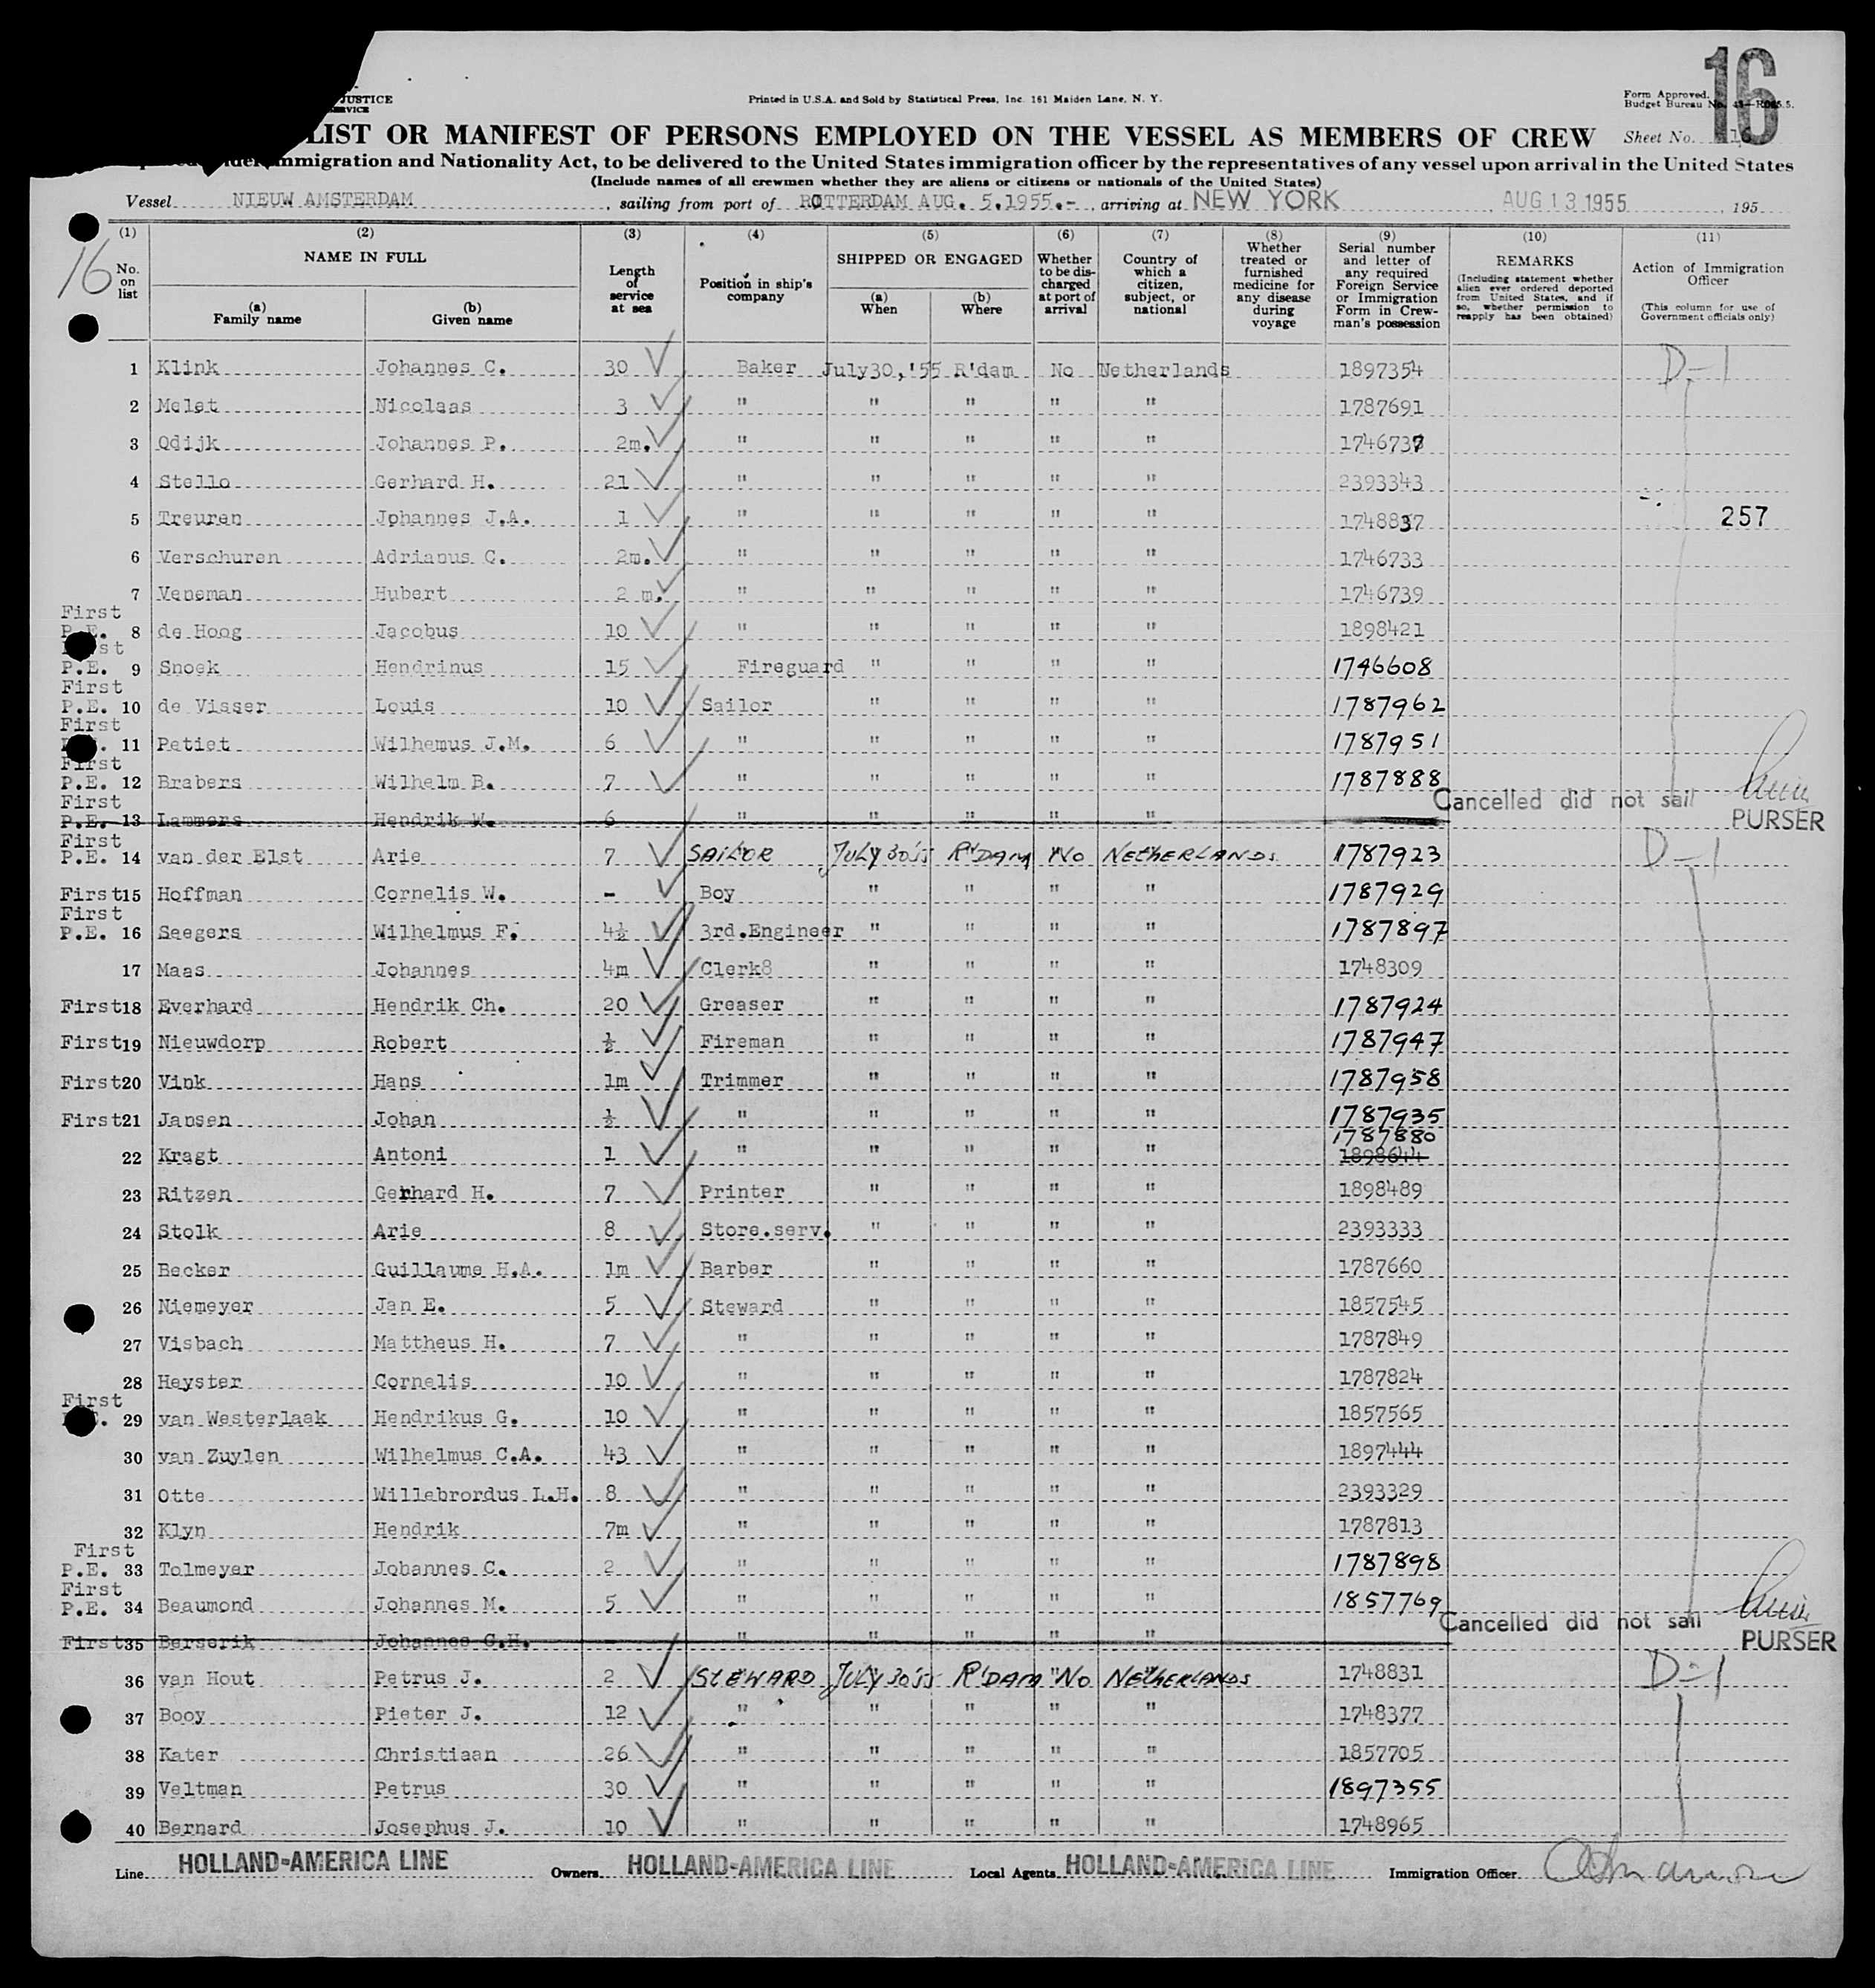 JUSTICE
SERVICE
Printed in U.S.A. and Sold by Statistical Press, Inc. 161 Maiden Lane, N. Y.
Form Approved.
Budget Bureau No.
16
LIST OR MANIFEST OF PERSONS EMPLOYED ON THE VESSEL AS MEMBERS OF CREW
Sheet No. 16
Immigration and Nationality Act, to be delivered to the United States immigration officer by the representatives of any vessel upon arrival in the United States
(Include names of all crewmen whether they are aliens or citizens or nationals of the United States)
Vessel NIEUW AMSTERDAM, sailing from port of ROTTERDAM AUG. 5.1955.-, arriving at NEW YORK, AUG 13 1955, 195
16
(1) No. on list
(2) NAME IN FULL (a) Family name (b) Given name
(3) Length of service at sea
(4) Position in ship's company
(5) SHIPPED OR ENGAGED (a) When (b) Where
(6) Whether to be discharged at port of arrival
(7) Country of which a citizen, subject, or national
(8) Whether treated or furnished medicine for any disease during voyage
(9) Serial number and letter of any required Foreign Service or Immigration Form in Crewman's possession
(10) REMARKS (Including statement whether alien ever ordered deported from United States, and if so, whether permission to reapply has been obtained)
(11) Action of Immigration Officer (This column for use of Government officials only)
1 Klink Johannes C. 30 Baker July30,'55 R'dam No Netherlands 1897354 D-1
2 Melet Nicolaas 3 " " " " " 1787691
3 Odijk Johannes P. 2m. " " " " " 1746737
4 Stello Gerhard H. 21 " " " " " 2393343
5 Treuren Johannes J.A. 1 " " " " " 1748837 257
6 Verschuren Adrianus C. 2m. " " " " " 1746733
7 Veneman Hubert 2 m. " " " " " 1746739
First P.E. 8 de Hoog Jacobus 10 " " " " " 1898421
First P.E. 9 Snoek Hendrinus 15 Fireguard " " " " 1746608
First P.E. 10 de Visser Louis 10 Sailor " " " " 1787962
First P.E. 11 Petiet Wilhemus J.M. 6 " " " " " 1787951
First P.E. 12 Brabers Wilhelm B. 7 " " " " " 1787888
First P.E. 13 Lammers Hendrik W. 6 " " " " " Cancelled did not sail PURSER
First P.E. 14 van der Elst Arie 7 SAILOR JULY 30'55 R'DAM No NETHERLANDS 1787923 D-1
First 15 Hoffman Cornelis W. - Boy " " " " 1787929
First P.E. 16 Seegers Wilhelmus F. 4½ 3rd.Engineer " " " " 1787897
17 Maas Johannes 4m Clerk8 " " " " 1748309
First 18 Everhard Hendrik Ch. 20 Greaser " " " " 1787924
First 19 Nieuwdorp Robert ½ Fireman " " " " 1787947
First 20 Vink Hans 1m Trimmer " " " " 1787958
First 21 Jansen Johan ½ " " " " " 1787935
22 Kragt Antoni 1 " " " " " 1787880 1898644
23 Ritzen Gerhard H. 7 Printer " " " " 1898489
24 Stolk Arie 8 Store.serv. " " " " 2393333
25 Becker Guillaume H.A. 1m Barber " " " " 1787660
26 Niemeyer Jan E. 5 Steward " " " " 1857545
27 Visbach Mattheus H. 7 " " " " " 1787849
28 Heyster Cornelis 10 " " " " " 1787824
First P.E. 29 van Westerlaak Hendrikus G. 10 " " " " " 1857565
30 van Zuylen Wilhelmus C.A. 43 " " " " " 1897444
31 Otte Willebrordus L.H. 8 " " " " " 2393329
32 Klyn Hendrik 7m " " " " " 1787813
First P.E. 33 Tolmeyer Johannes C. 2 " " " " " 1787898
First P.E. 34 Beaumond Johannes M. 5 " " " " " 1857769
First 35 Berserik Johannes G.H. - " " " " " Cancelled did not sail PURSER
36 van Hout Petrus J. 2 STEWARD JULY 30'55 R'DAM No NETHERLANDS 1748831 D-1
37 Booy Pieter J. 12 " " " " " 1748377
38 Kater Christiaan 26 " " " " " 1857705
39 Veltman Petrus 30 " " " " " 1897355
40 Bernard Josephus J. 10 " " " " " 1748965
Line HOLLAND-AMERICA LINE Owners HOLLAND-AMERICA LINE Local Agents HOLLAND-AMERICA LINE Immigration Officer